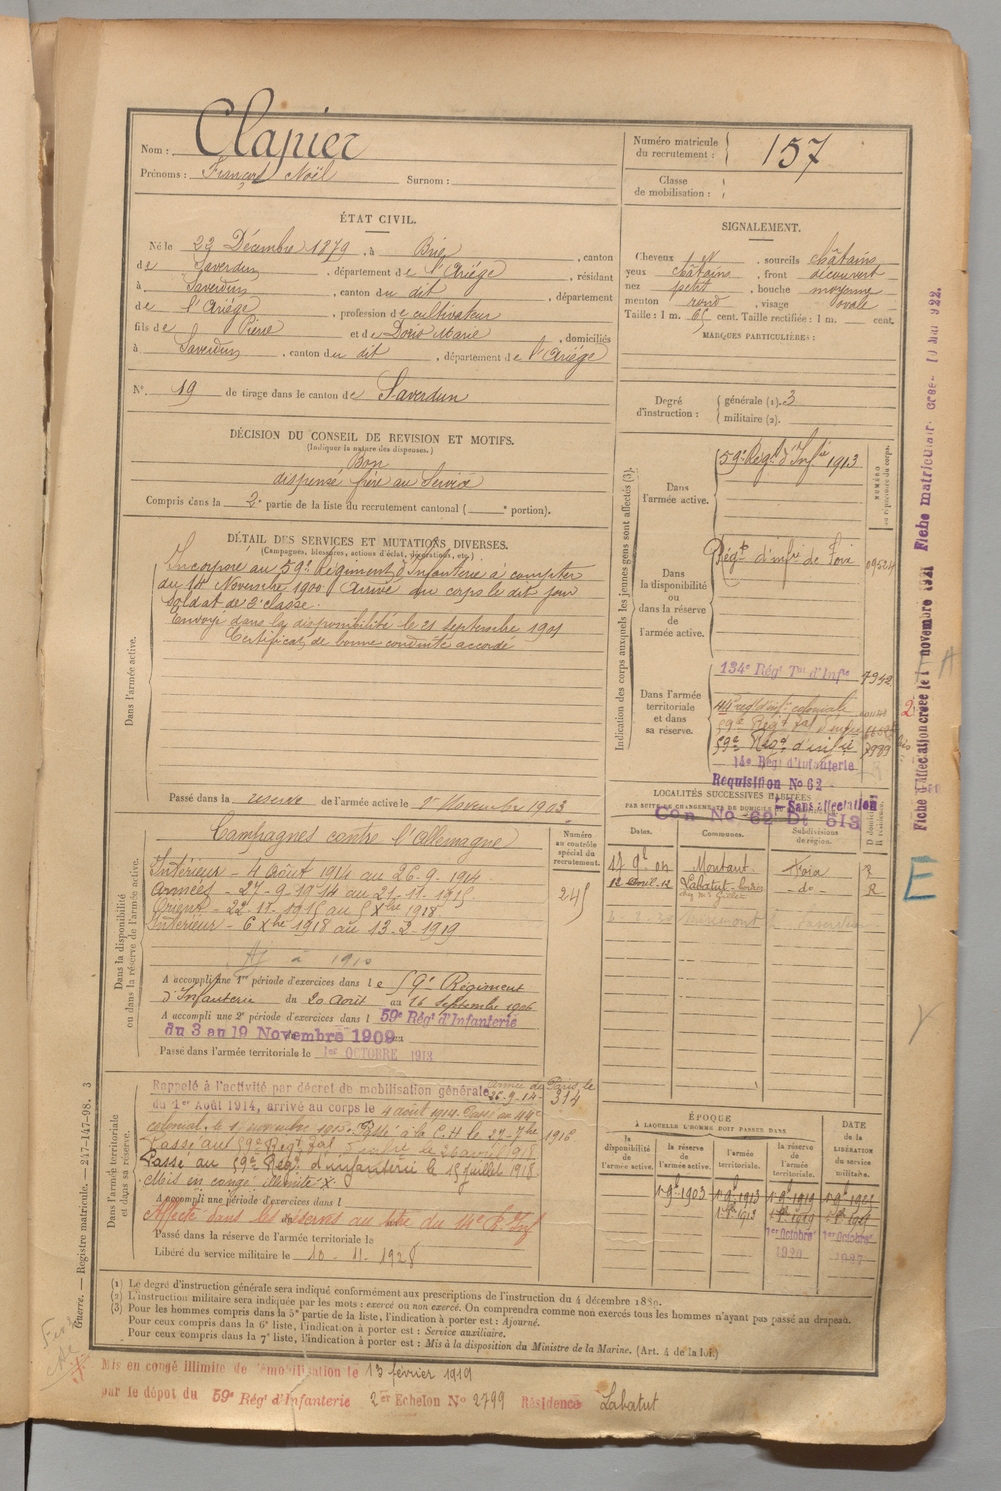 Nom : Clapier
Prénoms : François Noël Surnom :
Numéro matricule du recrutement : 157
Classe de mobilisation :
ÉTAT CIVIL.
Né le 23 Décembre 1879, à Brie, canton
de Saverdun, département de l'Ariège, résidant
à Saverdun, canton du dit, département
de l'Ariège, profession de cultivateur
fils de Pierre et de Doris Marie, domiciliés
à Saverdun, canton du dit, département de l'Ariège
N° 19 de tirage dans le canton de Saverdun
SIGNALEMENT.
Cheveux sourcils châtains
yeux châtains, front découvert
nez petit, bouche moyenne
menton rond, visage ovale
Taille : 1 m. 65 cent. Taille rectifiée : 1 m. cent.
MARQUES PARTICULIÈRES :
Degré d'instruction : générale (1). 3
militaire (2).
DÉCISION DU CONSEIL DE REVISION ET MOTIFS.
(Indiquer la nature des dispenses.)
Bon
dispensé frère au Service
Compris dans la 2e partie de la liste du recrutement cantonal ( e portion).
DÉTAIL DES SERVICES ET MUTATIONS DIVERSES.
(Campagnes, blessures, actions d'éclat, décorations, etc.)
Dans l'armée active.
Incorporé au 59e Régiment d'Infanterie à compter
du 14 Novembre 1900. Arrivé au corps le dit jour
soldat de 2e classe.
Envoyé dans la disponibilité le 21 septembre 1901
Certificat de bonne conduite accordé
Passé dans la réserve de l'armée active le 1er Novembre 1903
Indication des corps auxquels les jeunes gens sont affectés (3).
NUMÉRO au répertoire du corps.
Dans l'armée active.
59e Régt d'Infie 1913
Dans la disponibilité ou dans la réserve de l'armée active.
Régt d'infie de Foix 09524
Dans l'armée territoriale et dans sa réserve.
134e Régt Tal d'Infie 7952
44e régt d'inf. coloniale
59e Régt Tal d'infie
59e Régt d'infie 7989 bis
14e Régt d'Infanterie
Requisition No 62
Sans affectation
Con No 62 Dt 513
LOCALITÉS SUCCESSIVES HABITÉES
PAR SUITE DE CHANGEMENTS DE DOMICILE
Dates. Communes. Subdivisions de région.
Montaut Foix R
12 Avril 12 Labatut do R
Dans la disponibilité ou dans la réserve de l'armée active.
Numéro au contrôle spécial du recrutement.
Campagnes contre l'allemagne
Intérieur - 4 août 1914 au 26-9-1914
Armées - 27-9-1914 au 21-11-1915
Orient - 22-11-1915 au 5 Xbre 1918
Intérieur - 6 Xbre 1918 au 13-2-1919
245
A accompli une 1re période d'exercices dans le 59e Régiment
d'Infanterie du 20 août au 16 septembre 1906
A accompli une 2e période d'exercices dans l 59e Régt d'Infanterie
du 3 au 19 Novembre 1909
Passé dans l'armée territoriale le 1er OCTOBRE 1913
Dans l'armée territoriale et dans sa réserve.
Rappelé à l'activité par décret de mobilisation générale
du 1er Août 1914, arrivé au corps le 4 août 1914. Passé au 44e
colonial le 1 novembre 1915. Passé à la C.H. le 27-7bre 1916
314
Passé au 59e Régt Tal
Passé au 59e Régt d'infanterie le 15 juillet 1918
Mis en congé illimité X
A accompli une période d'exercices dans l
Affecté dans les réserves au titre du 14e R. Inf
Passé dans la réserve de l'armée territoriale le
Libéré du service militaire le 10-11-1928
ÉPOQUE
À LAQUELLE L'HOMME DOIT PASSER DANS
la disponibilité de l'armée active.
la réserve de l'armée active.
l'armée territoriale.
la réserve de l'armée territoriale.
DATE de la LIBÉRATION du service militaire.
1er Octobre 1er Octobre
(1) Le degré d'instruction générale sera indiqué conformément aux prescriptions de l'instruction du 4 décembre 1889.
(2) L'instruction militaire sera indiquée par les mots : exercé ou non exercé. On comprendra comme non exercés tous les hommes n'ayant pas passé au drapeau.
(3) Pour les hommes compris dans la 5e partie de la liste, l'indication à porter est : Ajourné.
Pour ceux compris dans la 6e liste, l'indication à porter est : Service auxiliaire.
Pour ceux compris dans la 7e liste, l'indication à porter est : Mis à la disposition du Ministre de la Marine. (Art. 4 de la loi.)
Guerre. — Registre matricule. — 217-147-98. 3
Mis en congé illimité de démobilisation le 13 février 1919
par le dépôt du 59e Régt d'Infanterie 2er Echelon No 2799 Résidence Labatut
Fiche d'Affectation créée le 1 novembre 1921
Fiche matriculaire créée 10 Mai 922.
E